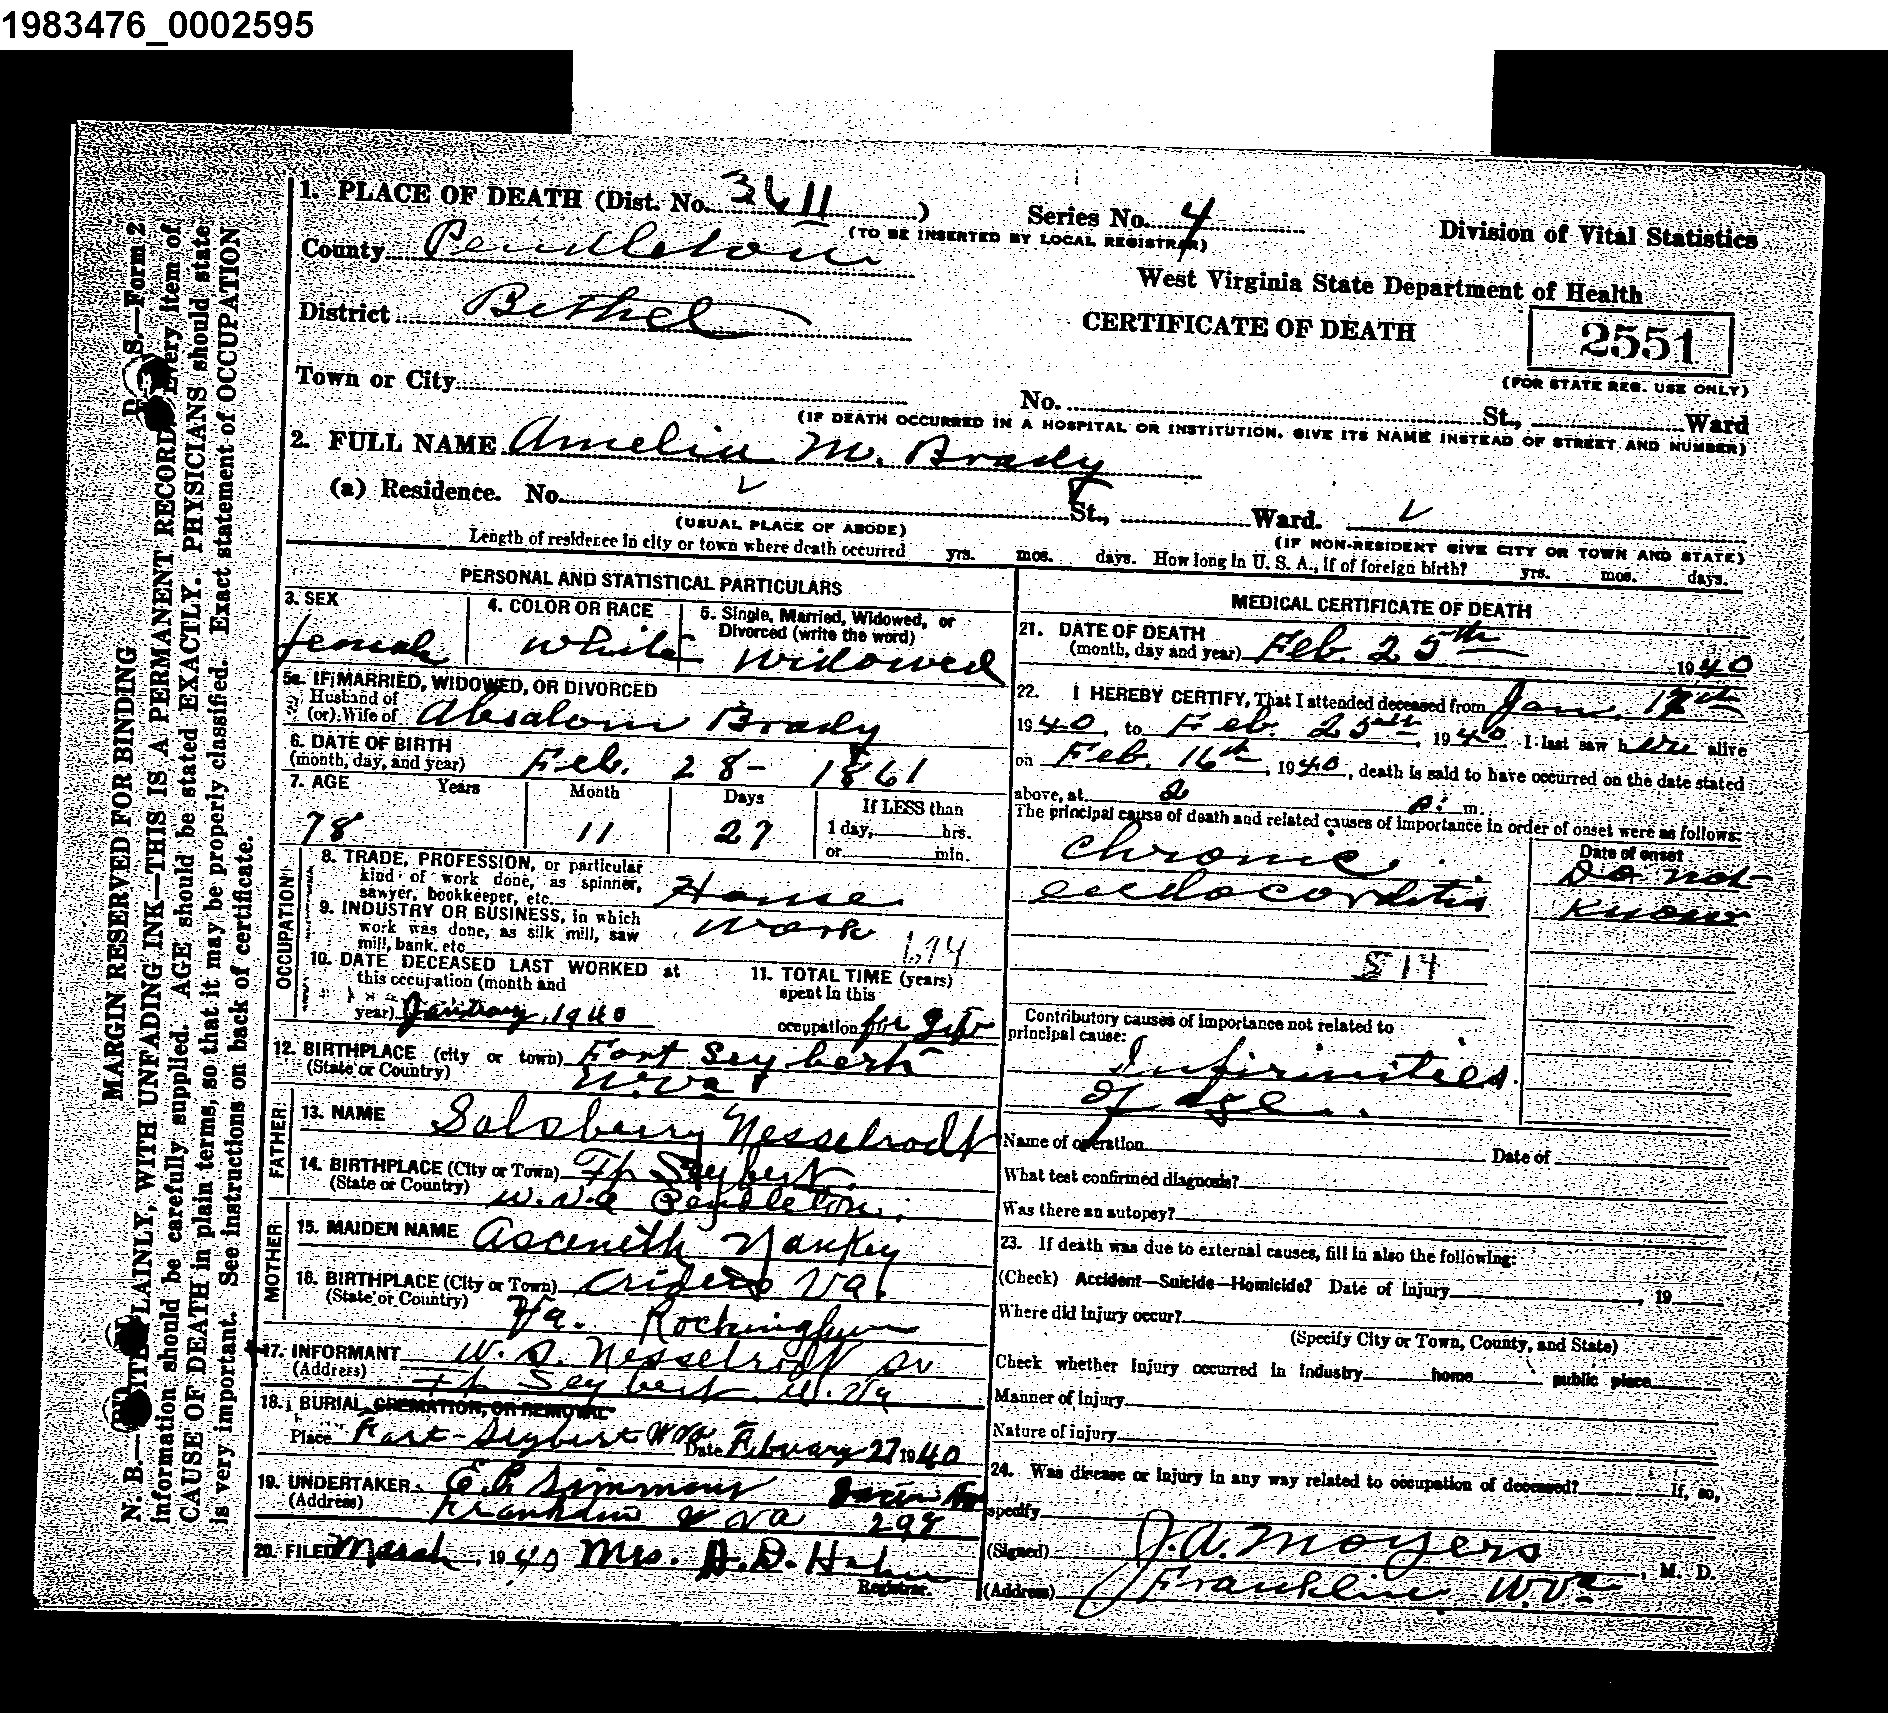 1983476_0002595
1. PLACE OF DEATH (Dist. No. 3611)
Series No. 4
(TO BE INSERTED BY LOCAL REGISTRAR)
Division of Vital Statistics
County Pendleton
West Virginia State Department of Health
District Bethel
CERTIFICATE OF DEATH
2551
(FOR STATE REG. USE ONLY)
Town or City
No. St., Ward
(IF DEATH OCCURRED IN A HOSPITAL OR INSTITUTION, GIVE ITS NAME INSTEAD OF STREET AND NUMBER)
2. FULL NAME Amelia M. Brady
(a) Residence. No. St., Ward.
(USUAL PLACE OF ABODE)
(IF NON-RESIDENT GIVE CITY OR TOWN AND STATE)
Length of residence in city or town where death occurred yrs. mos. days. How long in U. S. A., if of foreign birth? yrs. mos. days.
PERSONAL AND STATISTICAL PARTICULARS
3. SEX
female
4. COLOR OR RACE
White
5. Single, Married, Widowed, or
Divorced (write the word)
Widowed
5a. IF MARRIED, WIDOWED, OR DIVORCED
Husband of
(or) Wife of Absalom Brady
6. DATE OF BIRTH
(month, day, and year) Feb. 28- 1861
7. AGE Years Month Days If LESS than
78 11 27 1 day, hrs.
or min.
OCCUPATION
8. TRADE, PROFESSION, or particular
kind of work done, as spinner,
sawyer, bookkeeper, etc. House
9. INDUSTRY OR BUSINESS, in which
work was done, as silk mill, saw
mill, bank, etc. Work
10. DATE DECEASED LAST WORKED at
this occupation (month and
year) January, 1940
11. TOTAL TIME (years)
spent in this
occupation for life
12. BIRTHPLACE (city or town) Fort Seybert
(State or Country) W.Va.
FATHER
13. NAME Salsberry Nesselrodt
14. BIRTHPLACE (City or Town) Ft Seybert.
(State or Country) W.Va Pendleton.
MOTHER
15. MAIDEN NAME Asceneth Yankey
16. BIRTHPLACE (City or Town) Criders Va.
(State or Country) Va. Rockingham
17. INFORMANT W. S. Nesselrodt Sr
(Address) Ft Seybert W.Va
18. BURIAL, CREMATION, OR REMOVAL
Place Fort-Seybert W Va Date February 27 1940
19. UNDERTAKER E C Simmons
(Address) Franklin W Va 298
20. FILED March, 1940 Mrs. A. D. Hahn
Registrar.
MEDICAL CERTIFICATE OF DEATH
21. DATE OF DEATH
(month, day and year) Feb. 25th 1940
22. I HEREBY CERTIFY, That I attended deceased from Jan. 17th
1940, to Feb. 25th, 1940 I last saw here alive
on Feb. 16th, 1940, death is said to have occurred on the date stated
above, at 2 m.
The principal cause of death and related causes of importance in order of onset were as follows:
Date of onset
Chronic Do not
endocarditis know
Contributory causes of importance not related to
principal cause:
Infirmities
of age.
Name of operation Date of
What test confirmed diagnosis?
Was there an autopsy?
23. If death was due to external causes, fill in also the following:
(Check) Accident—Suicide—Homicide? Date of Injury 19
Where did Injury occur?
(Specify City or Town, County, and State)
Check whether Injury occurred in industry home public place
Manner of Injury
Nature of injury
24. Was disease or injury in any way related to occupation of deceased? If, so,
specify
(Signed) J. A. Moyers, M. D.
(Address) Franklin, W.Va
MARGIN RESERVED FOR BINDING
N. B.—PLAINLY, WITH UNFADING INK—THIS IS A PERMANENT RECORD. Every item of
information should be carefully supplied. AGE should be stated EXACTLY. PHYSICIANS should state
CAUSE OF DEATH in plain terms, so that it may be properly classified. Exact statement of OCCUPATION
is very important. See instructions on back of certificate.
S.—Form 2